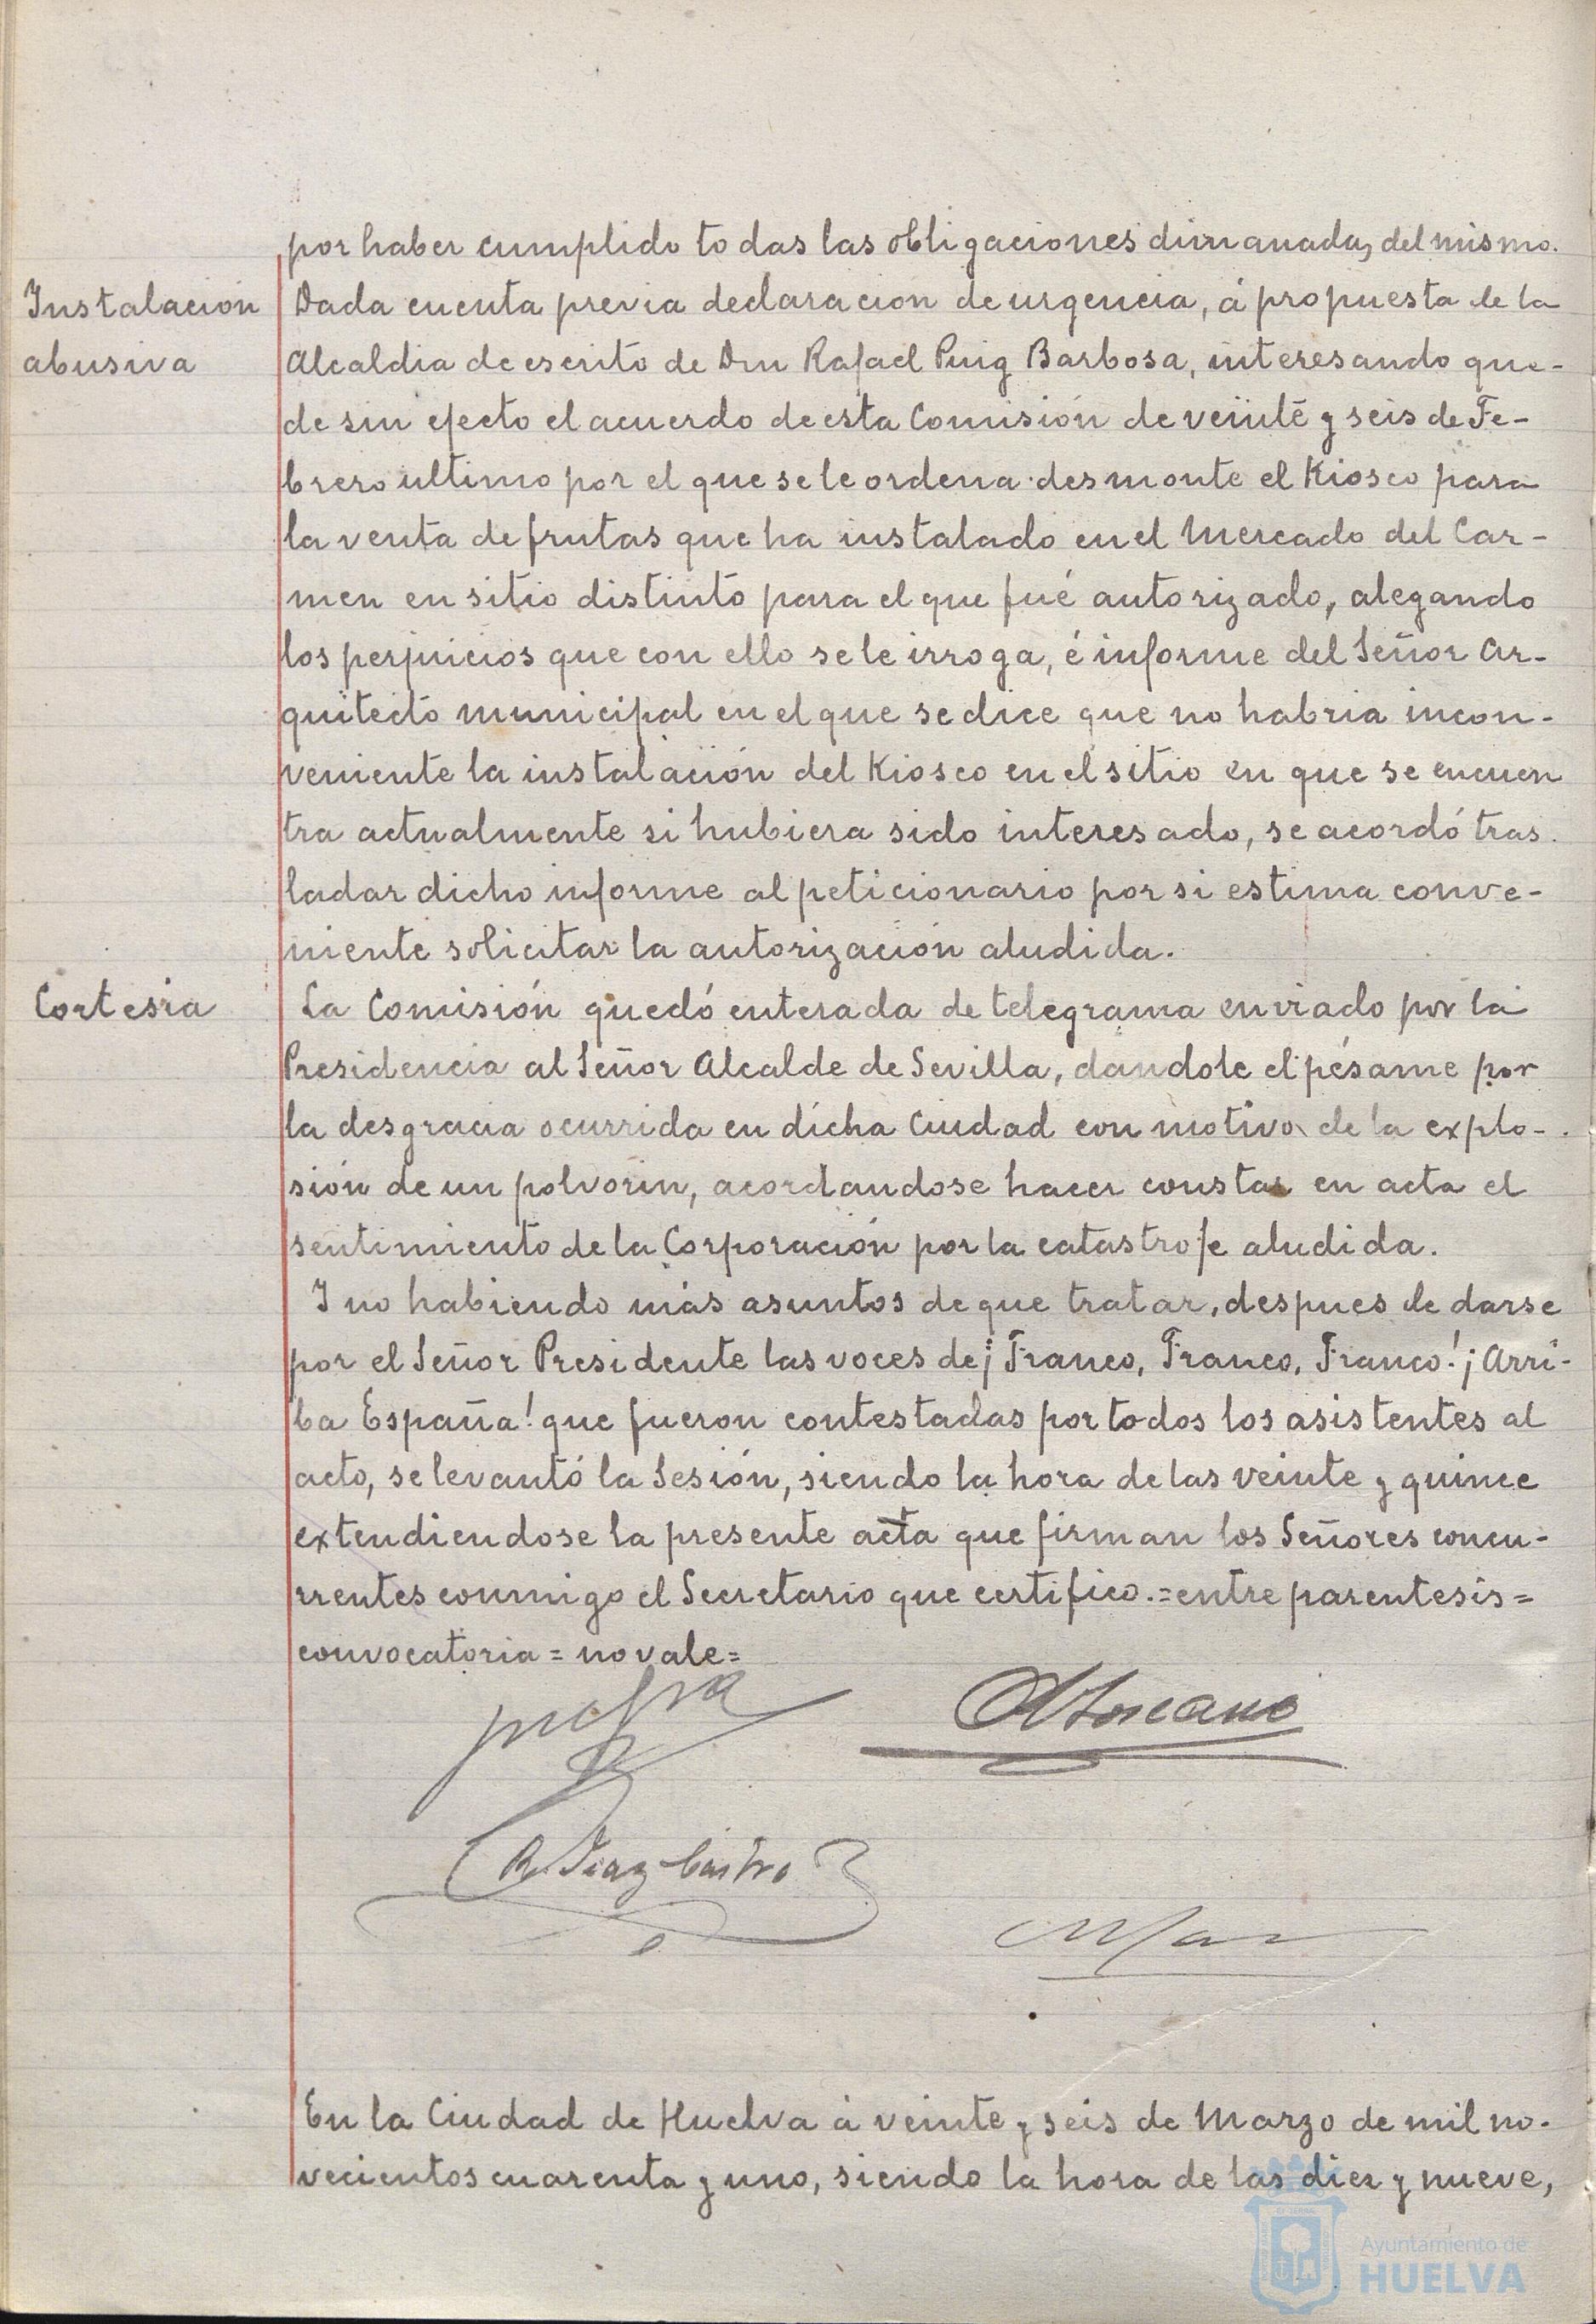 por haber cumplido todas las obligaciones dimanadas del mismo.
Instalación
abusiva
Dada cuenta previa declaracion de urgencia, á propuesta de la
Alcaldia de escrito de Don Rafael Puig Barbosa, interesando que-
de sin efecto el acuerdo de esta Comisión de veinte y seis de Fe-
brero ultimo por el que se le ordena desmonte el Kiosco para
la venta de frutas que ha instalado en el Mercado del Car-
men en sitio distinto para el que fué autorizado, alegando
los perjuicios que con ello se le irroga, é informe del Señor Ar-
quitecto municipal en el que se dice que no habria incon-
veniente la instalación del Kiosco en el sitio en que se encuen
tra actualmente si hubiera sido interesado, se acordó tras-
ladar dicho informe al peticionario por si estima conve-
niente solicitar la autorización aludida.
Cortesia
La Comisión quedó enterada de telegrama enviado por la
Presidencia al Señor Alcalde de Sevilla, dandole el pésame por
la desgracia ocurrida en dicha Ciudad con motivo de la explo-
sión de un polvorin, acordandose hacer constar en acta el
sentimiento de la Corporación por la catastrofe aludida.
Y no habiendo más asuntos de que tratar, despues de darse
por el Señor Presidente las voces de ¡Franco, Franco, Franco! ¡Arri-
ba España! que fueron contestadas por todos los asistentes al
acto, se levantó la Sesión, siendo la hora de las veinte y quince
extendiendose la presente acta que firman los Señores concu-
rrentes conmigo el Secretario que certifico.=entre parentesis=
convocatoria = no vale=
R. Diaz Castro
En la Ciudad de Huelva á veinte y seis de Marzo de mil no-
vecientos cuarenta y uno, siendo la hora de las diez y nueve,
Ayuntamiento de
HUELVA